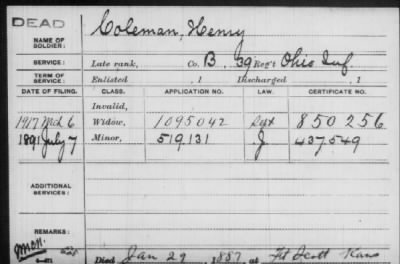 DEAD
NAME OF SOLDIER: Coleman, Henry
SERVICE: Late rank, Co. B, 39 Reg't Ohio Inf.
TERM OF SERVICE: Enlisted , 1 Discharged , 1
DATE OF FILING. CLASS. APPLICATION NO. LAW. CERTIFICATE NO.
Invalid,
1917 Mch 6 Widow, 1095042 850256
1891 July 7 Minor, 519,131 J. 437,549
ADDITIONAL SERVICES:
REMARKS:
Died Jan 29, 1887, at Ft Scott Kans